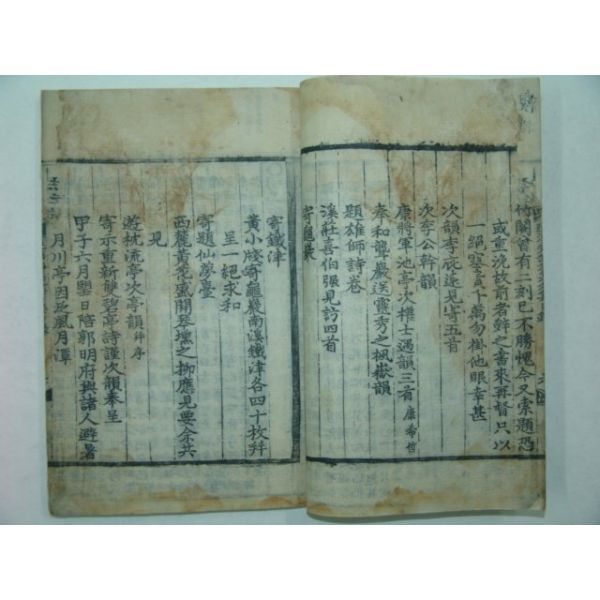 竹閣曾有二刻已不勝愧今又索題恐
或重浼故前者鮮之書來再督只以
一絕塞責千萬勿掛他眼幸甚
次韻李 遂見寄五首
次李公幹韻
康將軍池亭次權士遇韻三首 康希哲
奉和聾巖送靈秀之楓嶽韻
題雄師詩卷
溪莊喜伯張見訪四首
寄題
寄鐵津
黃小牋寄龜巖南溪鐵津各四十枚幷
呈一絕求和
寄題仙夢臺
西麓黃花盛開琴壎之 應見要余共
見
遊枕流亭次亭韻 幷序
寄示重新雙碧亭詩謹次韻奉呈
甲子六月 日陪郭明府與諸人避暑
月川亭因 風月潭